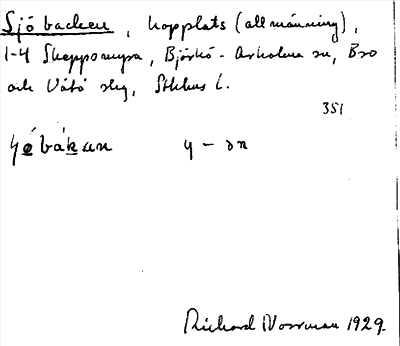 Sjöbacken, hopplats (allmänning),
1-4 Skeppsmyra, Björkö-Arholma sn, Bro
och Vätö slg, Sthlms l.
351
y – ən
Richard Norrman 1929.